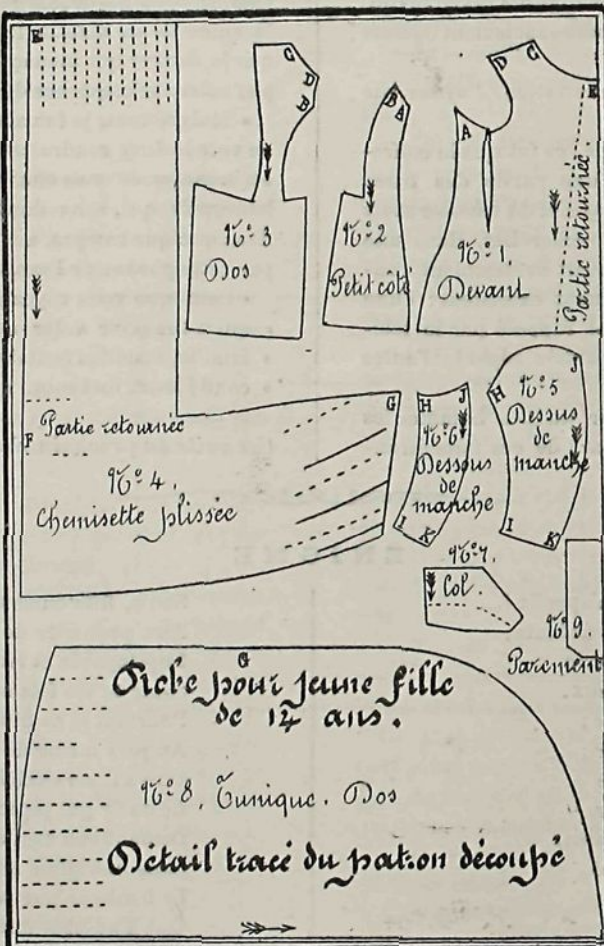 E
C
D
B
N.o 3
Dos
B
A
N.o 2
Petit côté
D
C
E
A
N.o 1.
Devant
Partie retournée.
F
Partie retournée
N.o 4.
Chemisette plissée
G
H
J
N.o 6
Dessous
de
manche
I
K
J
H
N.o 5
Dessus
de
manche
I
K
N.o 7.
Col.
N.o 9.
Parement
G
Robe pour jeune fille
de 12 ans.
N.o 8. Tunique. Dos
Détail tracé du patron découpé